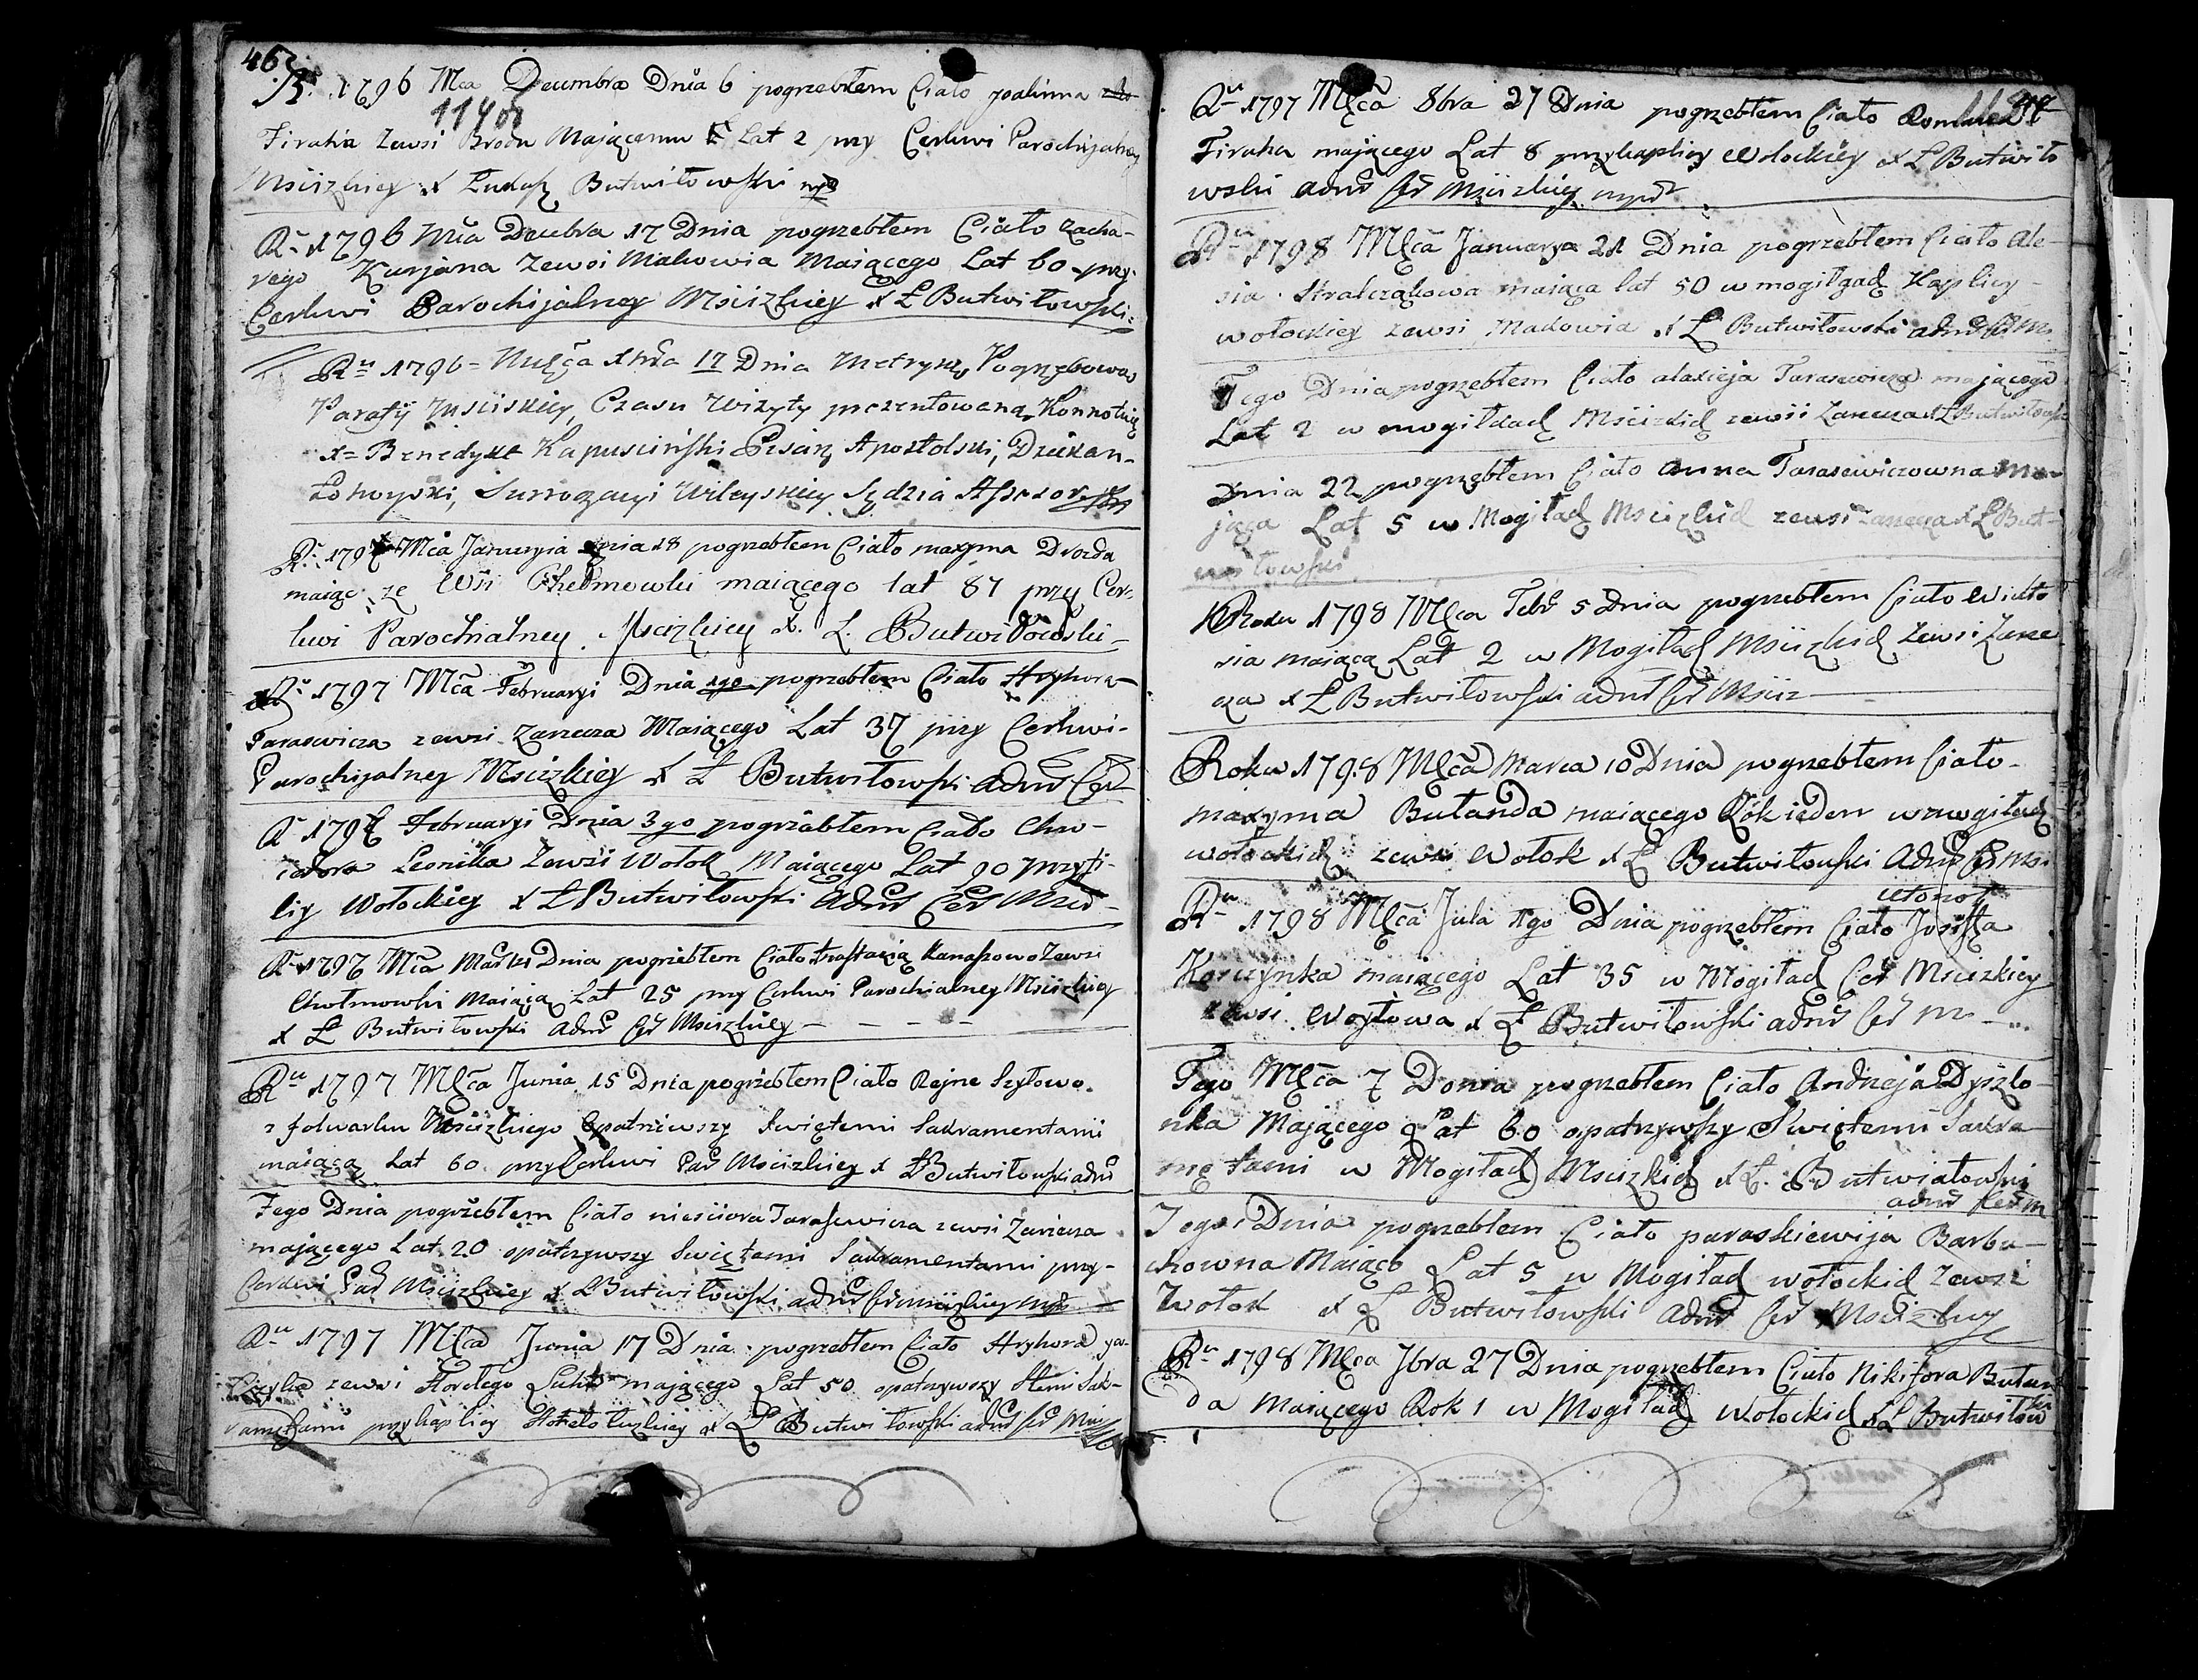 46
R. 1796 Mca Decembra Dnia 6 pogrzebłem Ciało Joakima
1140
Firaha zewsi Brodu Mającemu Lat 2 przy Cerkwi Parochijalney
Mścizkiey X Łukasz Butwiłowski mp
R. 1796 Mca Decebra 17 Dnia pogrzebłem Ciało Zacha-
rego Kurjana zewsi Makowia Maiącego Lat 60 przy
Cerkwi Parochijalney Mścizkiey X Ł Butwiłowski
Ru 1796 = Mięca Xbra 17 Dnia Metrykę Pogrzebową
Parafij Mściskiey, Czasu Wizyty prezentowaną Konnotuię
X= Benedykt Kapusciński Pisarz Apostolski, Dziekan
Surrogacyi Wileyskiey Sędzia Assesor
R. 1797 Mca Januaryia dnia 18 pogrzebłem Ciało maxyma Drozda
maiąc ze Wsi Chełmowki maiącego lat 87 przy Cer-
kwi Parochialney Mscizkiey X. L. Butwiłowski
Ru 1797 Mca Februaryi Dnia 1go pogrzebłem Ciało Hryhora
Tarasewicza zewsi Zarzecza Maiącego Lat 37 przy Cerkwi
Parochijalney Mscizkiey X Ł Butwiłowski Adm Cer
R 1797 Februaryi Dnia 3go pogrzabłem Ciało Chwe-
iadora Leonika zewsi Wołok Maiącego Lat 90 przy fi-
liy Wołockiey X Ł Butwiłowski Adm Cer
R 1797 Mca Dnia pogrzebłem Ciało zewsi
Chołmowki Maiąca Lat 25 przy Cerkwi Parochialney Mścizkiey
X Ł Butwiłowski Adm Cer Mscizkiey
Ru 1797 Męca Junia 15 Dnia pogrzebłem Ciało Rejne Szyłowo
z folwarku Mścizkiego Opatrziwszy Swiętemi Sakramentami
maiącą Lat 60 przy Cerkwi Par Mścizkiey X Ł Butwiłowski adm
Tego Dnia pogrzebłem Ciało niesciora Tarasewicza zewsi Zarzecza
maiącego Lat 20 opatrzywszy Swiętami Sakramentami przy
Cerkwi Par Mscizkiey X Ł Butwiłowski adm Cer Mscizkiey mp
Ru 1797 Męca Junia 17 Dnia pogrzebłem Ciało Hryhora
zewsi maiącego Lat 50 opatrzywszy Stemi Sak-
ramętami przy kaplicy X Ł Butwiłowski adm Cer
Ru 1797 Męca 8bra 27 Dnia pogrzebłem Ciało
Firaha maiącego Lat 8 przy kaplicy Wołockiey X Ł Butwiło
wski adm Cer Mścizkiey mp
Ru 1798 Męca Januarya 21 Dnia pogrzebłem Ciało Ale-
sia Stralczakowa maiąca lat 50 w mogiłgach Kaplicy
wołockiey zewsi Makowia X Ł Butwiłowski adm Cer Ms
Tego Dnia pogrzebłem Ciało alaxieja Tarasewicza maiącego
Lat 2 w mogiłkach Mścizkich zewsi Zarzecza X Ł Butwiłowski
Dnia 22 pogrzebłem Ciało Anna Tarasewiczowna ma-
jąca Lat 5 w Mogiłach Mscizkich zewsi Zarzecza X Ł But-
wiłowski
Roku 1798 Męca Febr 5 Dnia pogrzebłem Ciało Wikto
ria maiącą Lat 2 w Mogiłach Mścizkich zewsi Zarze
cza X Ł Butwiłowski adm Cer Mściz
Roku 1798 Męca Marca 10 Dnia pogrzebłem Ciało
maxyma Bułanda maiącego Rok ieden w mogiłach
wołockich zewsi Wołok X Ł Butwiłowski Adm Cer Ms
utonoł
Ru 1798 Męca Jula 1go Dnia pogrzebłem Ciało Josifa
Korczynka maiącego Lat 35 w Mogiłach Cer Mscizkiey
zewsi Woyłowa X Ł Butwiłowski adm Cer M
Tego Męca 7 Donia pogrzebłem Ciało Andrzeja Dyszlo
nka Mającego Lat 60 opatrzywszy Swiętemi Sakra
mętami w Mogiłach Mscizkich X Ł. Butwiałowski
adm Cer M
Tego Dnia pogrzebłem Ciało paraskiewija Barbu-
chowna Maiąco Lat 5 w Mogiłach wołockich zewsi
Wołok X Ł Butwiłowski Adm Cer Mscizkiey
Ru 1798 Męca 7bra 27 Dnia pogrzebłem Ciało Nikifora Bułan
da Maiącego Rok 1 w Mogiłach Wołockich X Ł Butwiłow